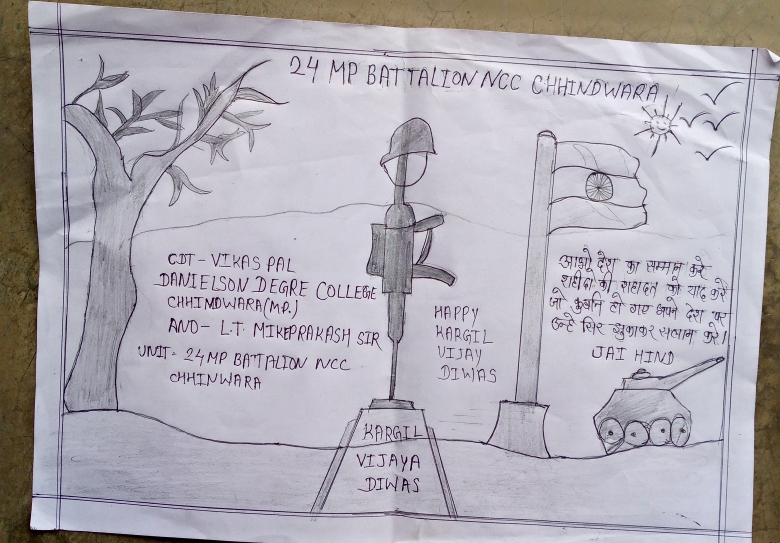 24 MP BATTALION NCC CHHINDWARA
CDT - VIKAS PAL
DANIELSON DEGRE COLLEGE
CHHINDWARA (MP.)
ANO - L.T. MIKEPRAKASH SIR
UNIT - 24 MP BATTALION NCC
CHHINWARA
HAPPY
KARGIL
VIJAY
DIWAS
आओ देश का सम्मान करे
शहीदो की शहादत को याद करे
जो कुर्बान हो गए अपने देश पर
उन्हे सिर झुकाकर सलाम करे।
JAI HIND
KARGIL
VIJAYA
DIWAS